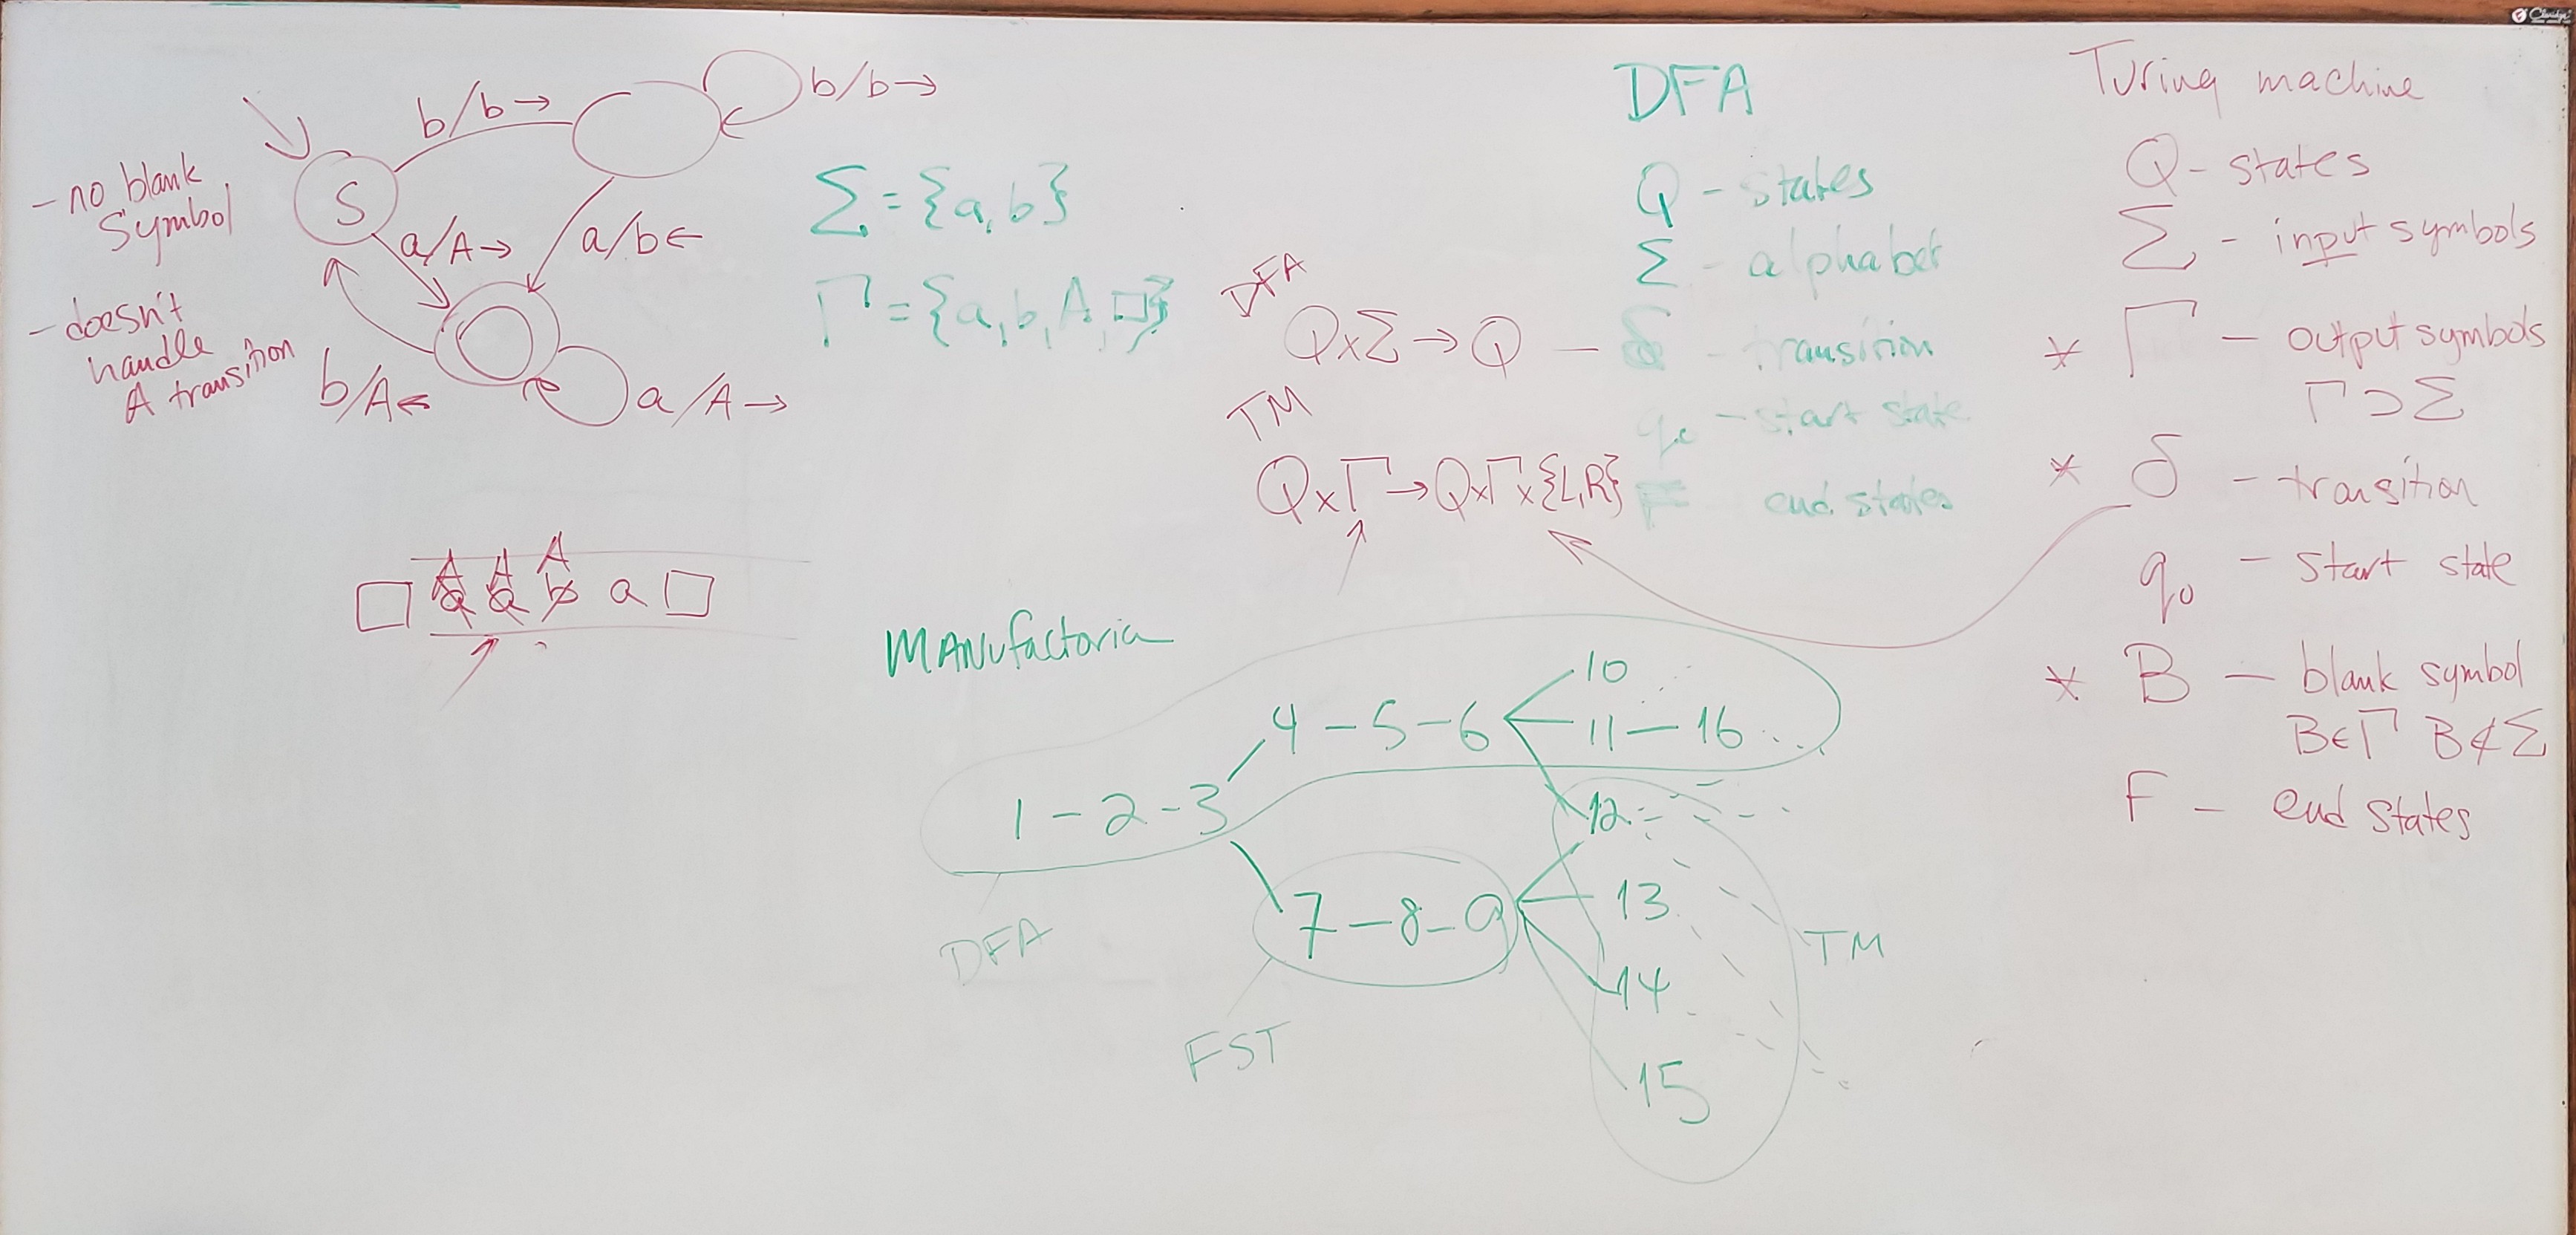 Claridge
b/b→
b/b→
S
a/A→
a/b←
b/A←
a/A→
- no blank
symbol
- doesn't
handle
A transition
Σ = {a, b}
Γ = {a, b, A, □}
□ a a b a □
A A A
DFA
Q×Σ→Q
TM
Q×Γ→Q×Γ×{L,R}
DFA
Q - states
Σ - alphabet
δ - transition
q0 - start state
F end states
Turing machine
Q - states
Σ - input symbols
* Γ - output symbols
Γ⊃Σ
* δ - transition
q0 - start state
* B - blank symbol
B∈Γ B∉Σ
F - end states
MANufactoria
1 - 2 - 3
4 - 5 - 6
10
11 - 16 ...
12
7 - 8 - 9
13
14
15
DFA
FST
TM